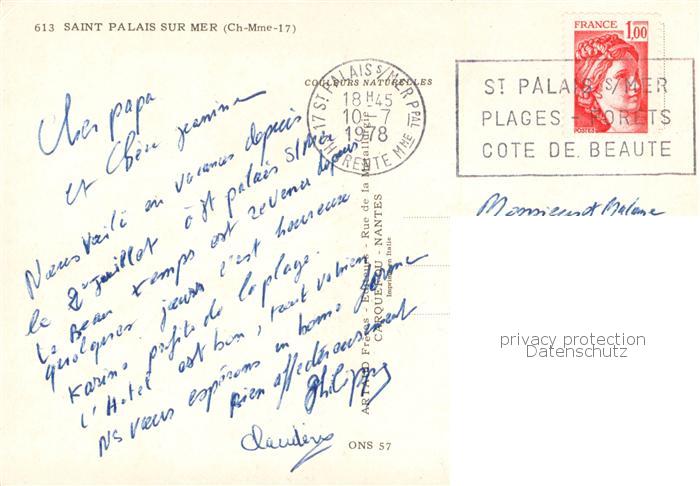 613 SAINT PALAIS SUR MER (Ch-Mme-17)
COULEURS NATURELLES
Cher papa
et Chère Jeanine
Nous voilà en vacances depuis
le 2 Juillet à St palais S/Mer
Le Beau temps est revenu depuis
quelques jours c'est heureuse
Karine profite de la plage.
L'Hotel est bon, tout va bien
Ns vous espérons en bonne forme
Bien affectueusement
Philippe
Claudine
ONS 57
ARTAUD Frères - Editeurs - Rue de la Métallurgie
CARQUEFOU - NANTES
Imprimé en Italie
17 ST PALAIS S/MER PPAL
18H45
10-7
1978
CHARENTE MME
FRANCE
1,00
POSTES
ST PALAIS S/MER
PLAGES - FORETS
COTE DE BEAUTE
Monsieur et Madame
privacy protection
Datenschutz